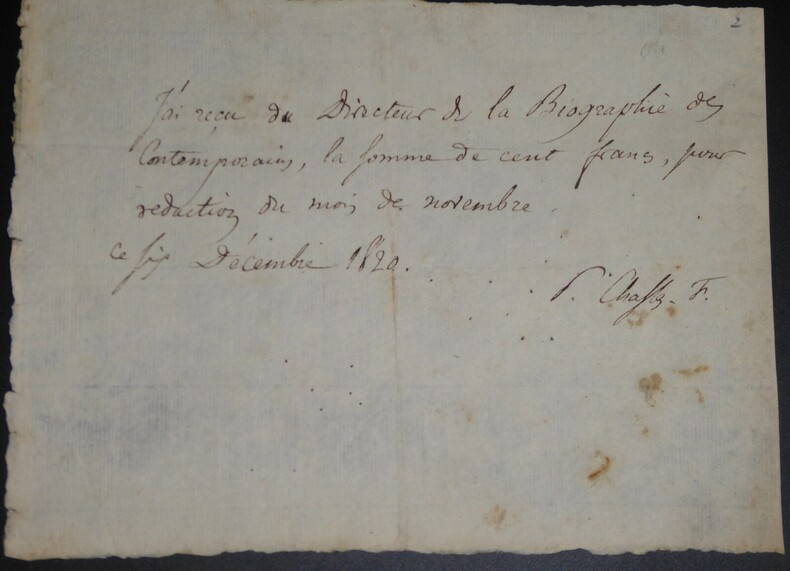 2
J'ai reçu du Directeur de la Biographie des
Contemporains, la somme de cent francs, pour
redaction du mois de novembre.
ce six Décembre 1820.
P. F.